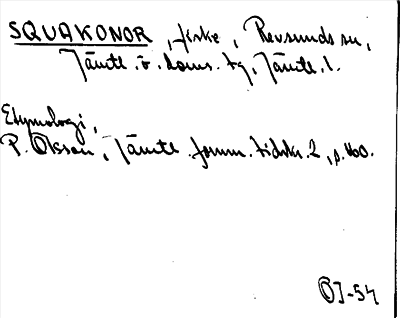 SQUAKONOR, fiske, Revsunds sn,
Jämtl. ö. doms. tg, Jämtl. l.
Etymologi,
P. Olsson, Jämtl. fornm. tidskr. 2, p. 160.
OJ-54